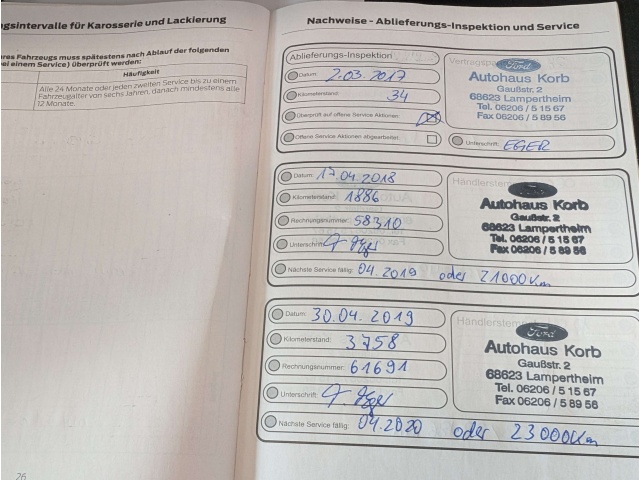 gsintervalle für Karosserie und Lackierung
res Fahrzeugs muss spätestens nach Ablauf der folgenden
ei einem Service) überprüft werden:
Häufigkeit
Alle 24 Monate oder jeden zweiten Service bis zu einem
Fahrzeugalter von sechs Jahren, danach mindestens alle
12 Monate.
26
Nachweise - Ablieferungs-Inspektion und Service
Ablieferungs-Inspektion
Datum: 2.03.2017
Kilometerstand: 34
Überprüft auf offene Service Aktionen:
Offene Service Aktionen abgearbeitet:
Vertragspa
Ford
Autohaus Korb
Gaußstr. 2
68623 Lampertheim
Tel. 06206 / 5 15 67
Fax 06206 / 5 89 56
Unterschrift: EGER
Datum: 17.04.2018
Kilometerstand: 1886
Rechnungsnummer: 58310
Unterschrift:
Nächste Service fällig: 04.2019 oder 21000Km
Händlerstem
Autohaus Korb
Gaußstr. 2
68623 Lampertheim
Tel. 06206 / 5 15 67
Fax 06206 / 5 89 56
Datum: 30.04.2019
Kilometerstand: 3758
Rechnungsnummer: 61691
Unterschrift:
Nächste Service fällig: 04.2020 oder 23000Km
Händlerstem
Ford
Autohaus Korb
Gaußstr. 2
68623 Lampertheim
Tel. 06206 / 5 15 67
Fax 06206 / 5 89 56